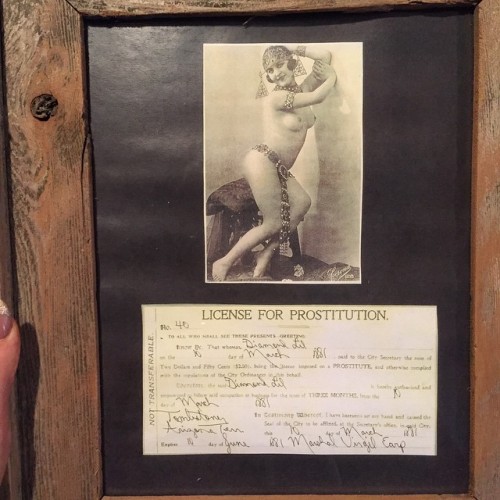 LICENSE FOR PROSTITUTION.
No. 40
NOT TRANSFERABLE.
TO ALL WHO SHALL SEE THESE PRESENTS GREETING:
Know Ye That whereas, Diamond Lil
on the 8 day of March 1881 paid to the City Secretary the sum of
Two Dollars and Fifty Cents being the license imposed on a PROSTITUTE, and otherwise complied
with the regulations of the City Ordinance in this behalf.
the said Diamond Lil is hereby authorized and
empowered to follow said occupation as for the term of THREE MONTHS, from the 8
March 1881
Tombstone
Arizona Terr
In Confirming Whereof, I have hereunto set my hand and caused the
Seal of the City to be affixed, at the Secretary's office, in said City,
this 8 day of March 1881
Expires 8 day of June 1881 Marshal Virgil Earp